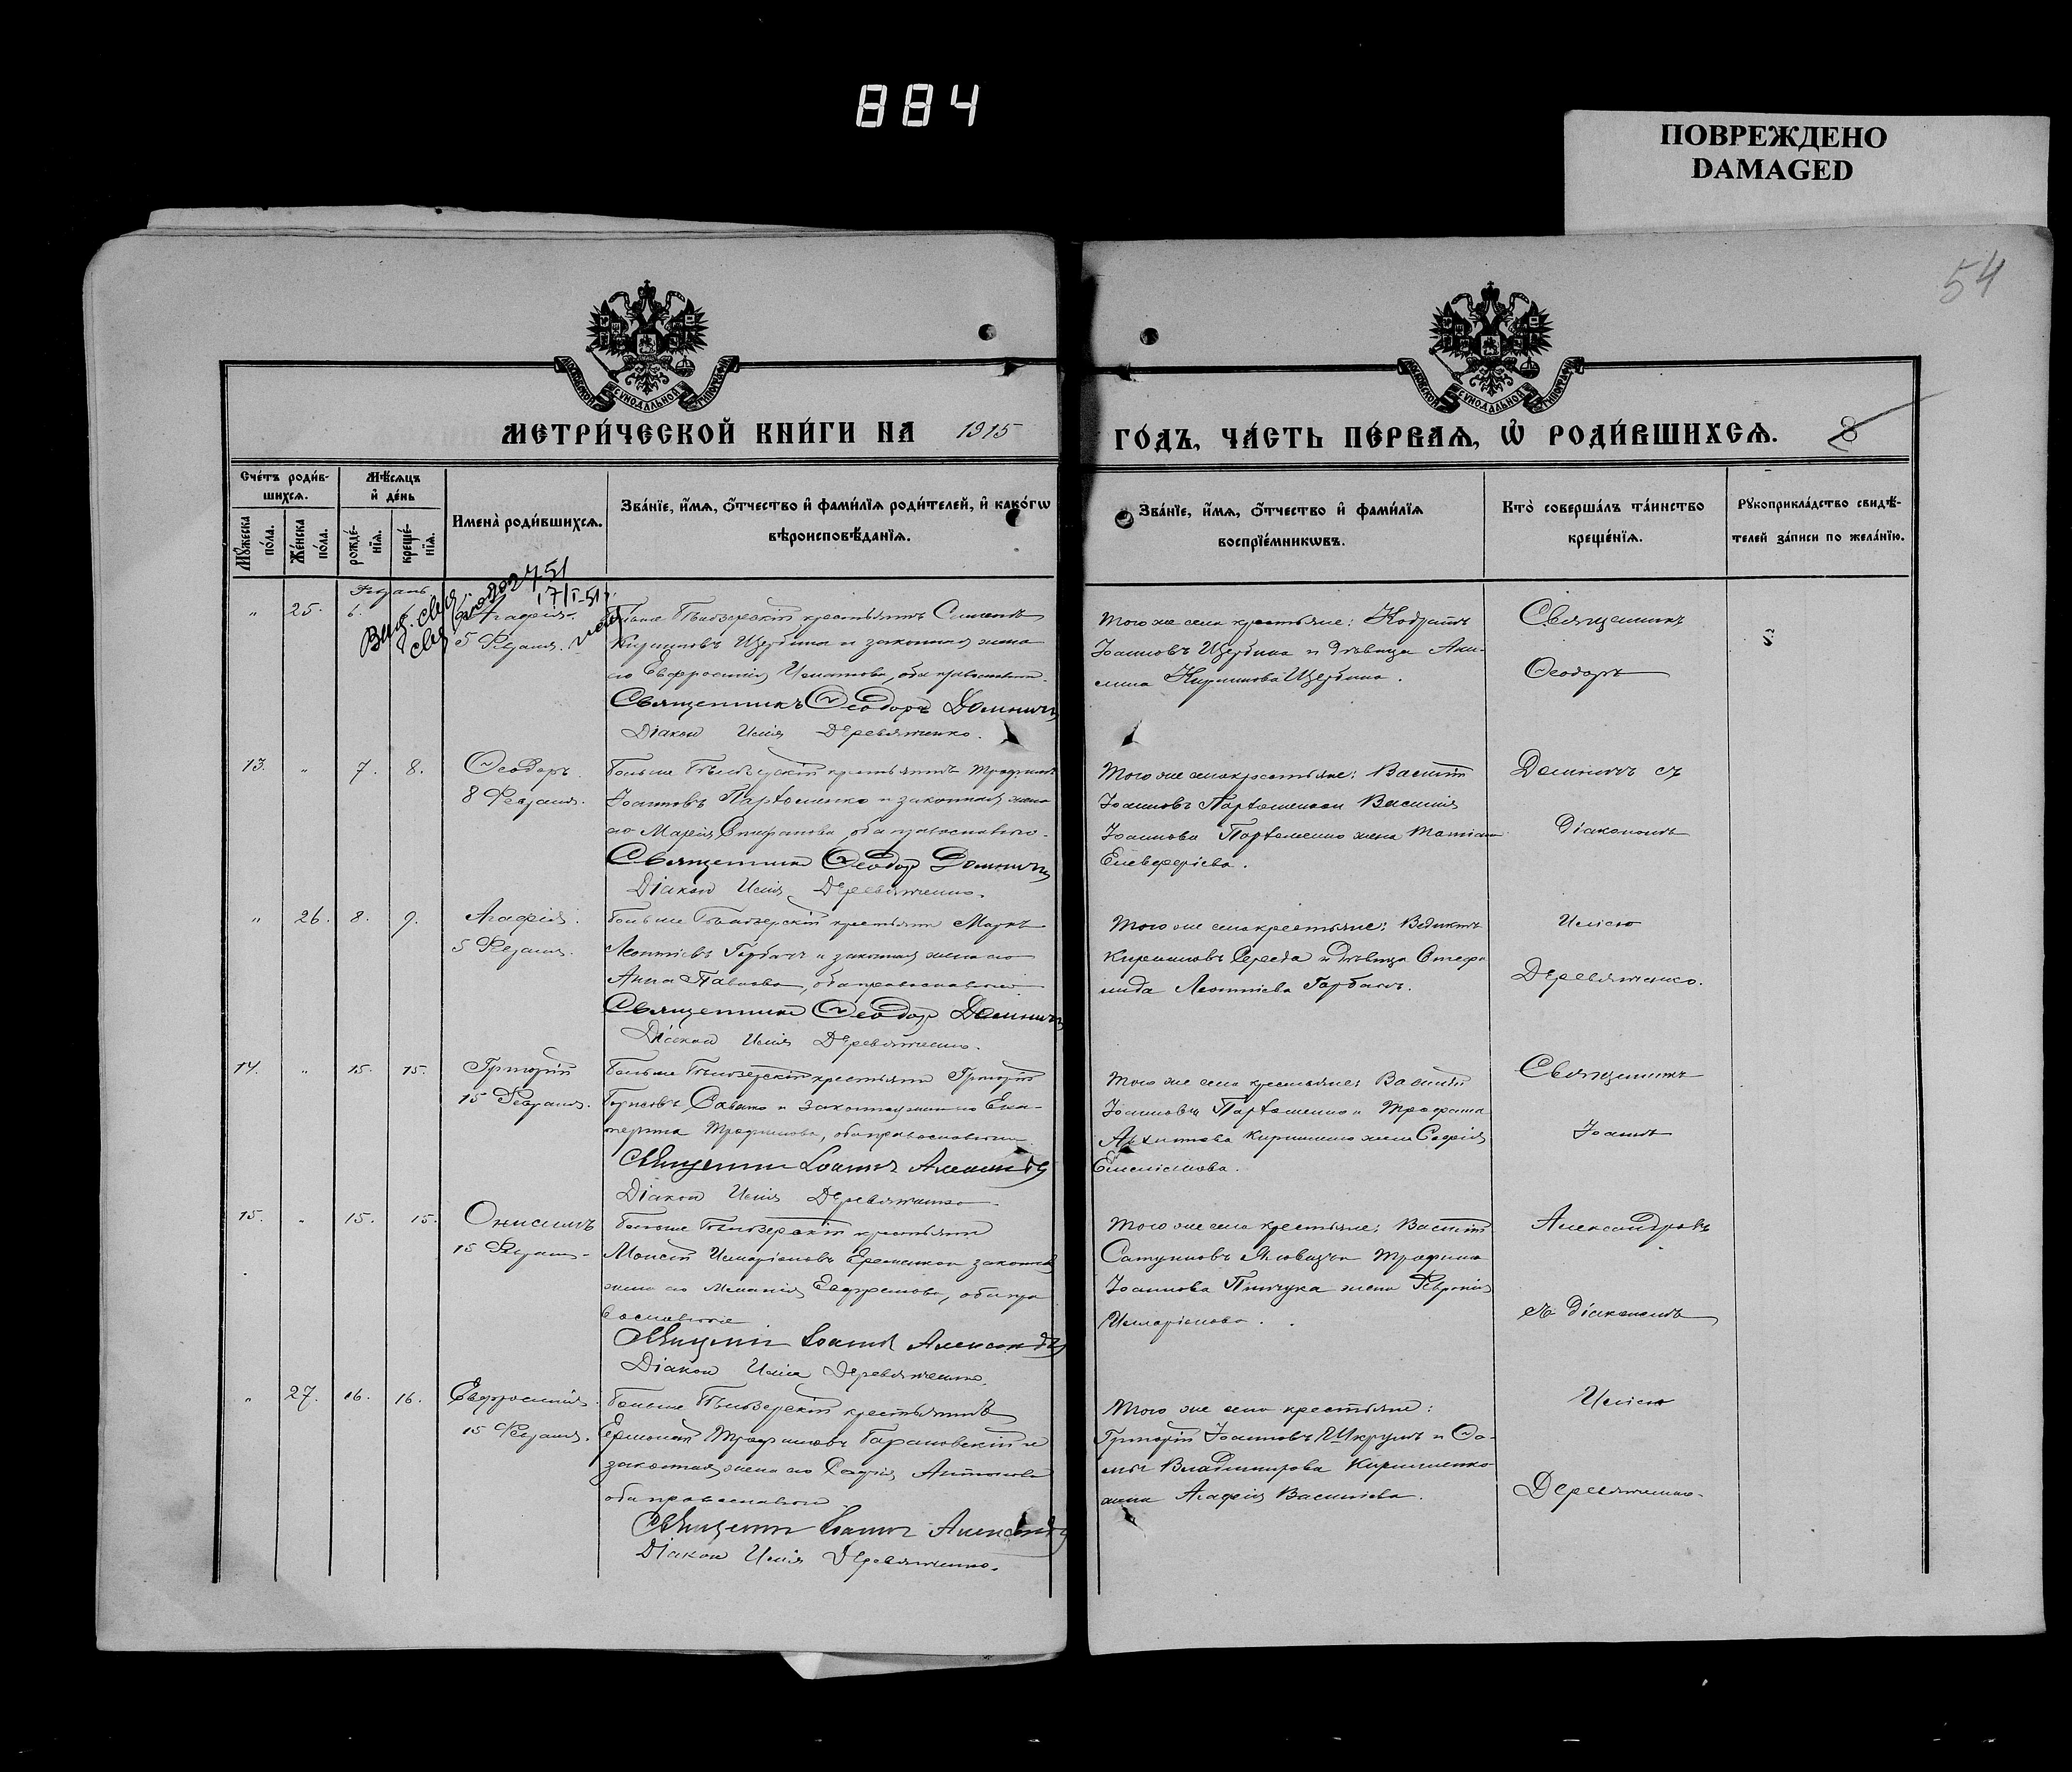 884
ПОВРЕЖДЕНО
DAMAGED
54
МОСКОВСКОЙ СѴНОДАЛЬНОЙ ТИПОГРАФІИ
МОСКОВСКОЙ СѴНОДАЛЬНОЙ ТИПОГРАФІИ
МЕТРИ́ЧЕСКОЙ КНИ́ГИ НА 1915 ГО́ДЪ, ЧА́СТЬ ПЕ́РВАѦ, Ѽ РОДИ́ВШИХСѦ. 8
Сче́тъ роди́в-
шихсѧ.
Мꙋ́жеска по́ла.
Же́нска по́ла.
Мѣ́сѧцъ
и҆ де́нь
рожде́-
нїѧ.
креще́-
нїѧ.
Имена̀ роди́вшихсѧ.
Зва́нїе, и҆́мѧ, ѻ҆́тчество и҆ фами́лїѧ роди́телей, и҆ како́гѡ
вѣроисповѣ́данїѧ.
Зва́нїе, и҆́мѧ, ѻ҆́тчество и҆ фами́лїѧ
воспрїе́мникѡвъ.
Кто̀ соверша́лъ та́инство
креще́нїѧ.
Рꙋкоприкла́дство свидѣ́-
телей за́писи по жела́нїю.
17/I-51 г.
" 25. 6. Агафія.
5 Февраля.
Кирилловъ Щербина и законная жена
его Евфросинія Игнатова, оба православн.
Священникъ Ѳеодоръ
Діакон Илія Деревянченко.
Того же села крестьяне: Кодратъ
Іоанновъ Щербина и дѣвица Аки-
лина Кириллова Щербина.
Священникъ
Ѳеодоръ
13. " 7. 8. Ѳеодоръ.
8 Февраля.
Больше Бѣлозерскій крестьянинъ Трофимъ
Іоанновъ Парѳоменко и законная жена
его Марія Стефанова, оба православные.
Священникъ Ѳеодор
Діакон Илія Деревянченко.
Того же села крестьяне: Василій
Іоанновъ Парѳоменко и Василія
Іоаннова Парѳоменко жена
Елевферіева.
съ
Діакономъ
" 26. 8. 9. Агафія.
5 Февраля.
Больше Бѣлозерскій крестьянин Маркъ
Леонтіевъ Горбачъ и законная жена его
Анна Павлова, оба православные
Священникъ Ѳеодор
Діакон Илія Деревянченко.
Того же села крестьяне:
Кирилловъ Середа и дѣвица Стефа
нида Леонтіева Горбачъ.
Иліею
Деревянченко.
14. " 15. 15. Григорій
15 Февраля.
Больше Бѣлозерскій крестьянин Григорій
Борисовъ Савенко и законная жена его Ека-
терина Трофимова, оба православные
Священник Іоаннъ
Діакон Илія Деревянченко
Того же села крестьяне: Василій
Іоанновъ Парѳоменко и Трофима
Кириленко жена Софія
Священникъ
Іоаннъ
15. " 15. 15. Онисимъ
15 Февраля.
Больше Бѣлозерскій крестьянин
Моисей Иларіоновъ Еременко и законная
жена его Меланія Евфремова, оба пра
вославные
Священник Іоанн Александровъ
Діакон Илія Деревянченко.
Того же села крестьяне: Василій
Іоаннова Пинчука жена Февронія
Иларіонова.
Александровъ
съ діакономъ
" 27. 16. 16. Евфросинія.
15 Февраля.
Больше Бѣлозерскій крестьянинъ
Ермолай Трофимовъ Барановскій и
законная жена его Софія Антонова
оба православные.
Священник Іоаннъ Александровъ
Діакон Илія Деревянченко.
Того же села крестьяне:
Григорій Іоанновъ Шкрумъ и Ѳо-
мы Владимирова Кириченко
жена Агафія Васильева.
Иліею
Деревянченко.